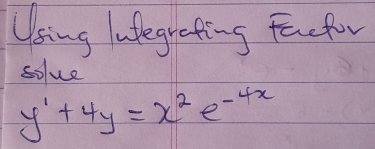 Using Integrating Factor
solve
y' + 4y = x² e^{-4x}